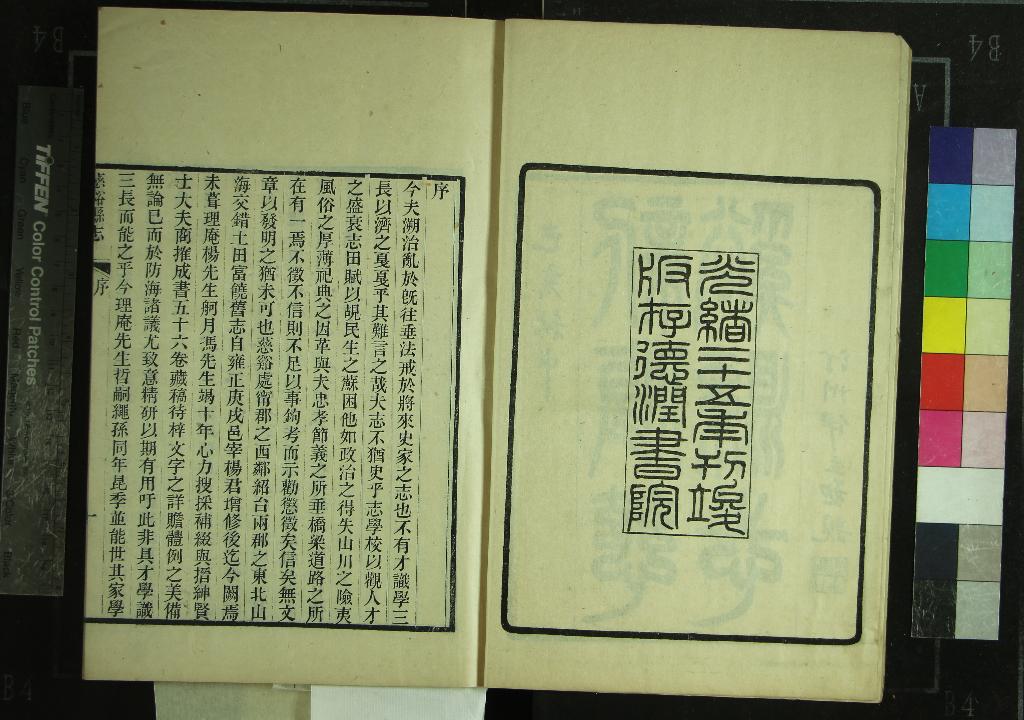 光緒二十五年刊竣
版存德潤書院
序
今夫溯治亂於旣往垂法戒於將來史家之志也不有才識學三
長以濟之戛戛乎其難言之哉夫志不猶史乎志學校以觀人才
之盛衰志田賦以覘民生之蘇困他如政治之得失山川之險夷
風俗之厚薄祀典之因革與夫忠孝節義之所垂橋梁道路之所
在有一焉不徵不信則不足以事鉤考而示勸懲徵矣信矣無文
章以發明之猶未可也慈谿處甯郡之西鄰紹台兩郡之東北山
海交錯土田富饒舊志自雍正庚戌邑宰楊君增修後迄今闕焉
未葺理庵楊先生舸月馮先生竭十年心力搜採補綴與搢紳賢
士大夫商搉成書五十六卷藏稿待梓文字之詳贍體例之美備
無論已而於防海諸議尤致意精研以期有用吁此非具才學識
三長而能之乎今理庵先生哲嗣繩孫同年昆季並能世其家學
慈谿縣志
序
一
TIFFEN Color Control Patches
Blue
Cyan
Green
Yellow
Red
Magenta
White
3/Color
Black
B4
B4
A
B4
B4